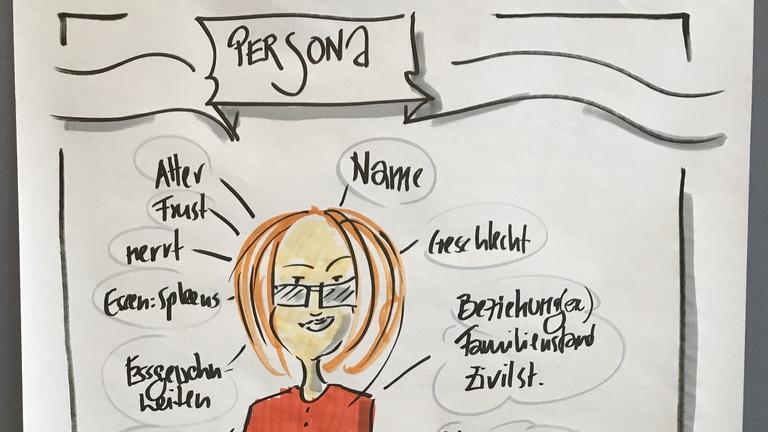 PERSONA
Name
Alter
Frust
nervt
Geschlecht
Essen: Spleens
Beziehung(en)
Familienstand
Zivilst.
Essgewohn
heiten